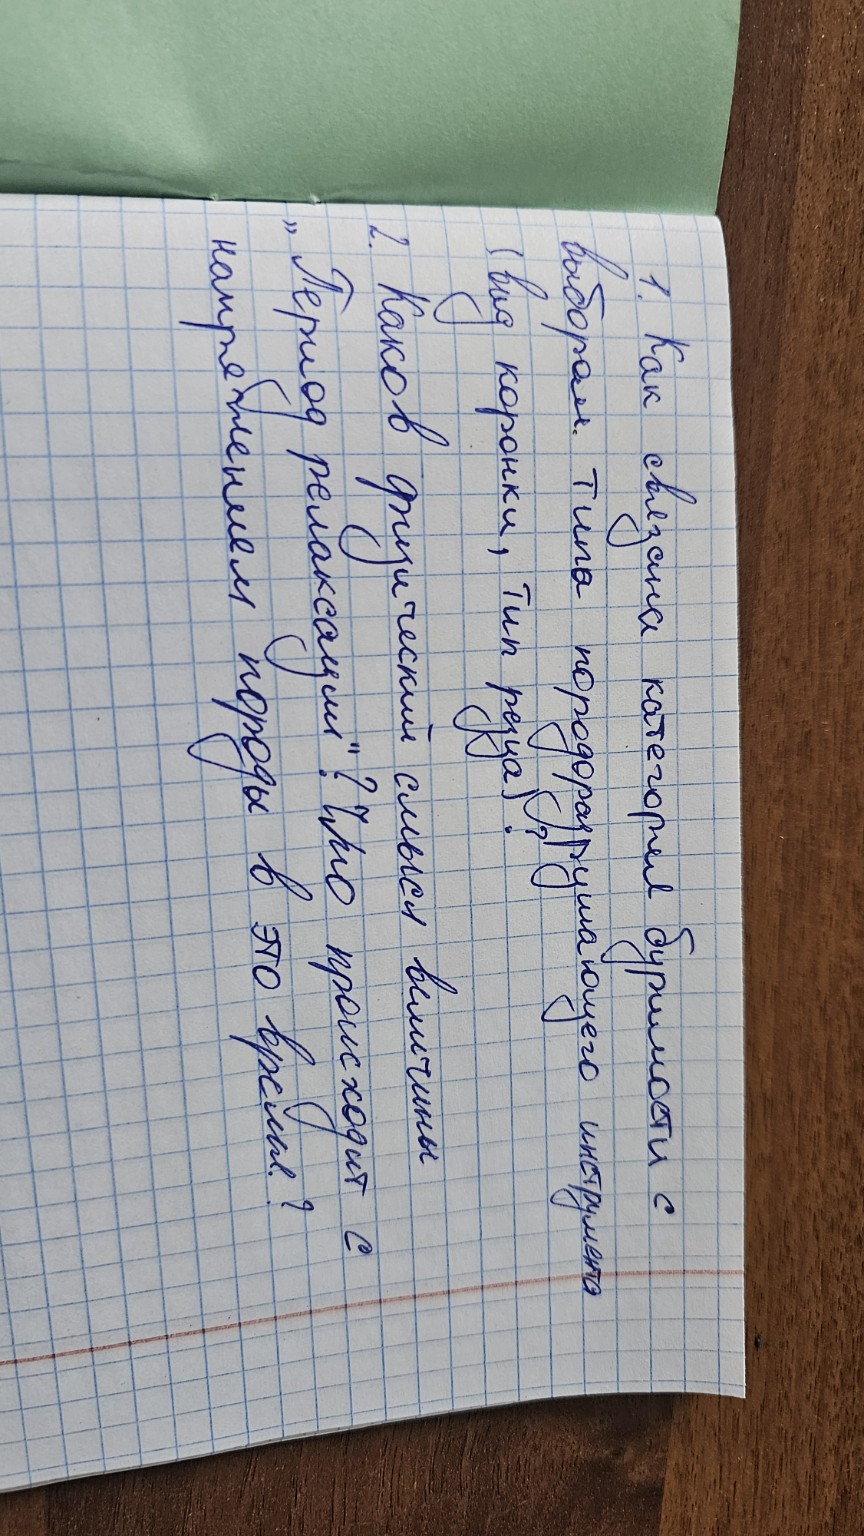 1. Как связана категория буримости с
выбором типа породоразрушающего инструмента
(вид коронки, тип резца)?
2. Каков физический смысл величины
„Период релаксации"? Что происходит с
напряжением породы в это время?